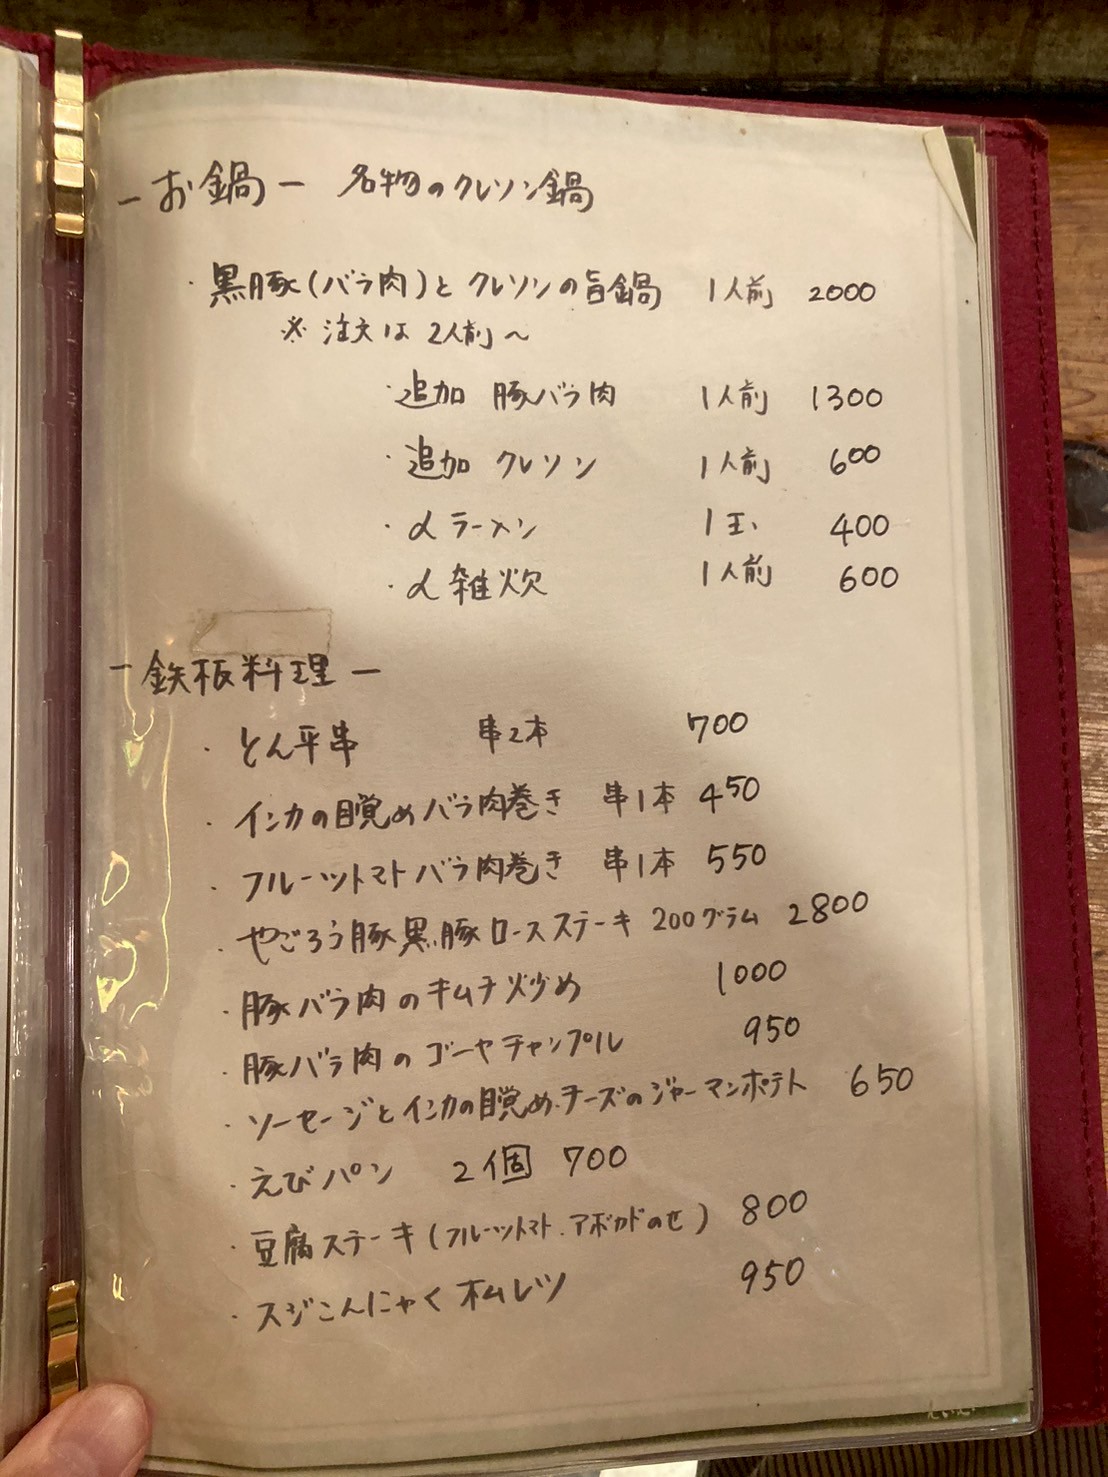 －お鍋－ 名物のクレソン鍋
・黒豚(バラ肉)とクレソンの旨鍋 1人前 2000
※ 注文は 2人前〜
・追加 豚バラ肉 1人前 1300
・追加 クレソン 1人前 600
・〆ラーメン 1玉 400
・〆雑炊 1人前 600
－鉄板料理－
・とん平串 串2本 700
・インカの目覚めバラ肉巻き 串1本 450
・フルーツトマトバラ肉巻き 串1本 550
・やごろう豚黒豚ロースステーキ 200グラム 2800
・豚バラ肉のキムチ炒め 1000
・豚バラ肉のゴーヤチャンプル 950
・ソーセージとインカの目覚め.チーズのジャーマンポテト 650
・えびパン 2個 700
・豆腐ステーキ(フルーツトマト.アボカドのせ) 800
・スジこんにゃくオムレツ 950